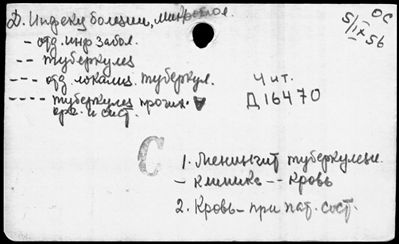 Д. Индекс болезни, микробиол.
ОС
5/IX 56
- отд. инф забол.
-- туберкулез
--- отд. локализ. туберкул.
---- туберкулез прочих
орг. и сист.
Чит.
Д16470
С
1. Менингит туберкулезн.
- клиника -- кровь
2. Кровь - при пат. сост.